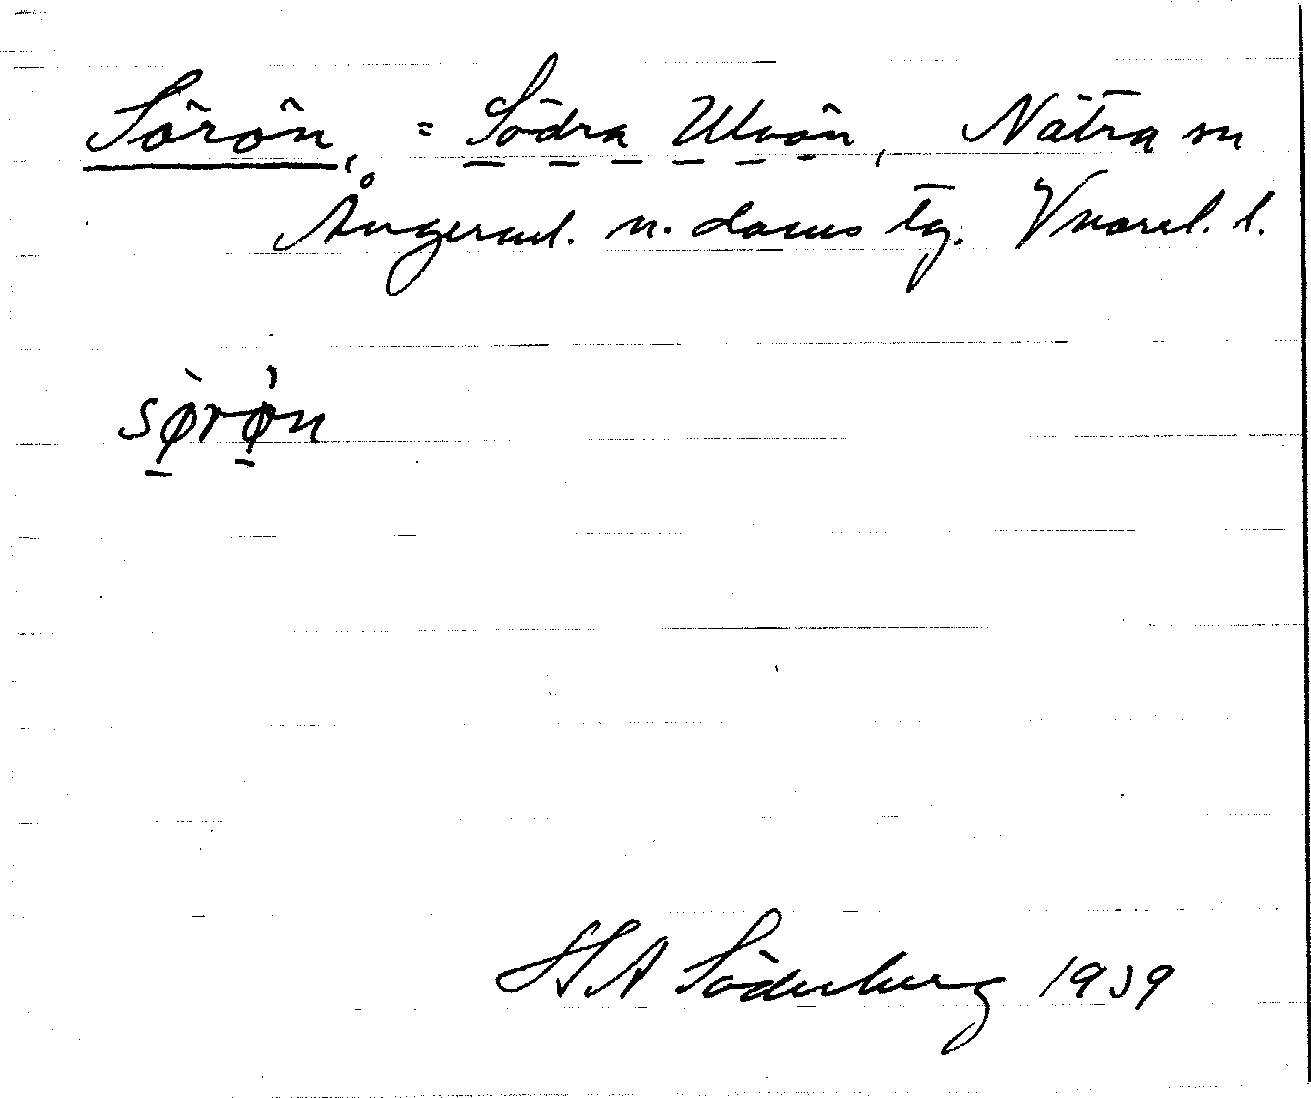 Sörön, = Södra Ulvön, Nätra sn
Ångerml. n. doms tg. Vnorrl. l.
sø̀rø̀n
H A Söderberg 1939